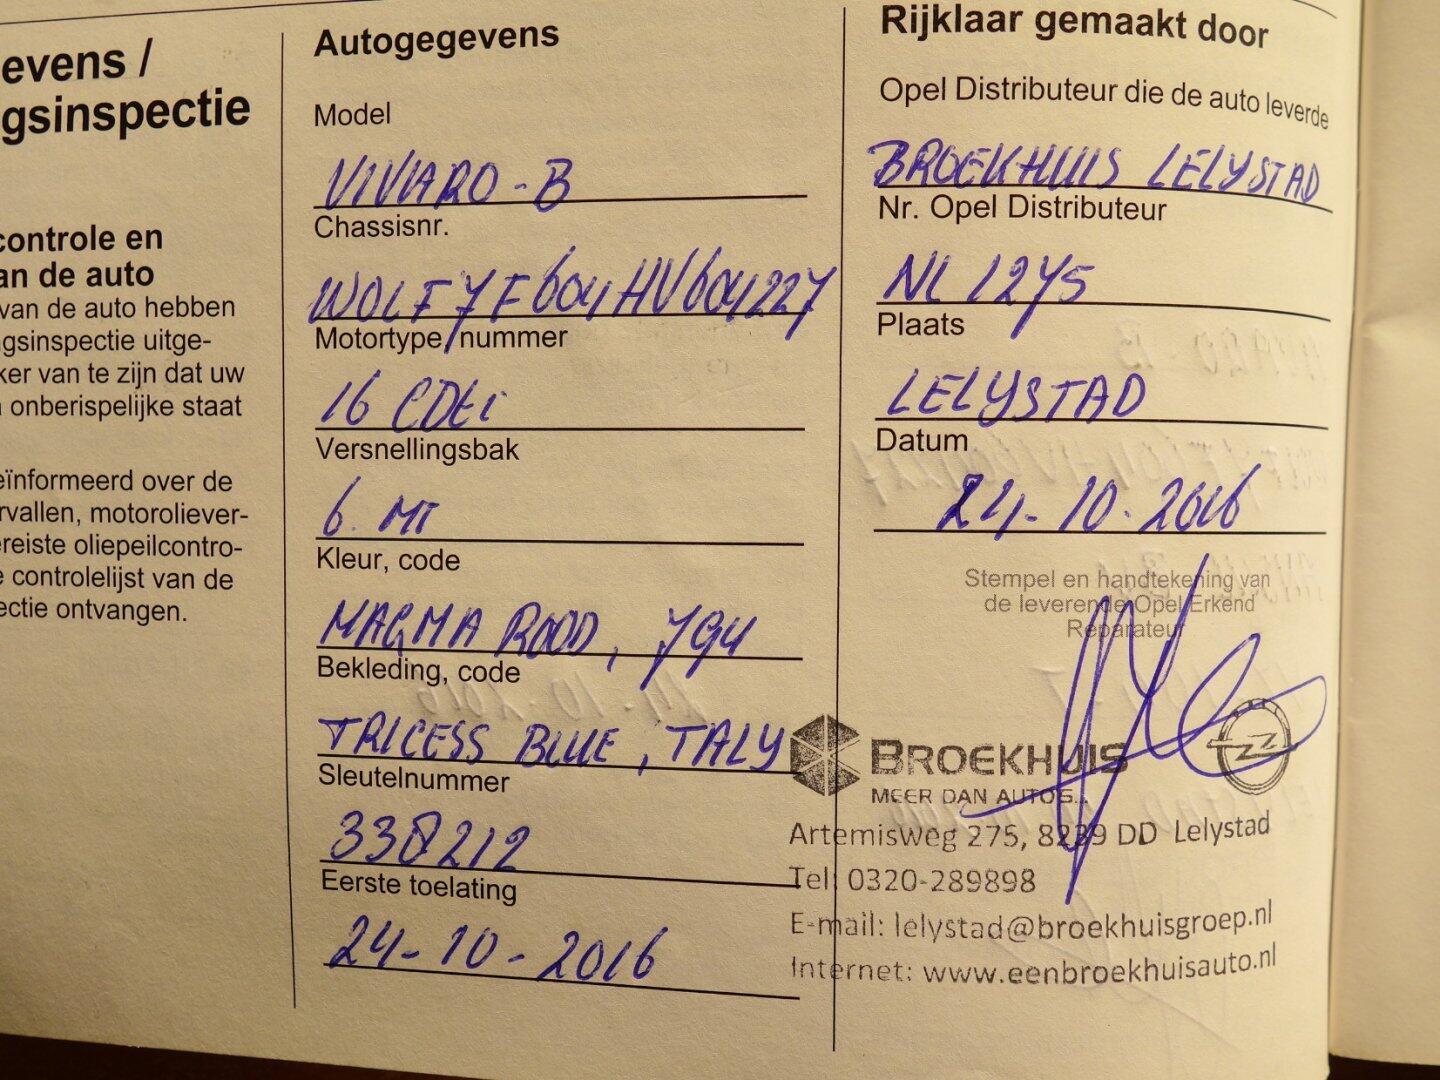 evens /
gsinspectie
controle en
an de auto
van de auto hebben
gsinspectie uitge-
ker van te zijn dat uw
onberispelijke staat
eïnformeerd over de
rvallen, motoroliever-
ereiste oliepeilcontro-
e controlelijst van de
ectie ontvangen.
Autogegevens
Model
VIVARO - B
Chassisnr.
WOLF7F604HV604227
Motortype/nummer
16 CDti
Versnellingsbak
6. MT
Kleur, code
MAGMA ROOD, 794
Bekleding, code
TRICESS BLUE, TALY
Sleutelnummer
338212
Eerste toelating
24-10-2016
Rijklaar gemaakt door
Opel Distributeur die de auto leverde
BROEKHUIS LELYSTAD
Nr. Opel Distributeur
NL 1275
Plaats
LELYSTAD
Datum
24-10-2016
Stempel en handtekening van
de leverende Opel Erkend
Reparateur
BROEKHUIS
MEER DAN AUTO'S...
Artemisweg 275, 8239 DD Lelystad
Tel: 0320-289898
E-mail: lelystad@broekhuisgroep.nl
Internet: www.eenbroekhuisauto.nl